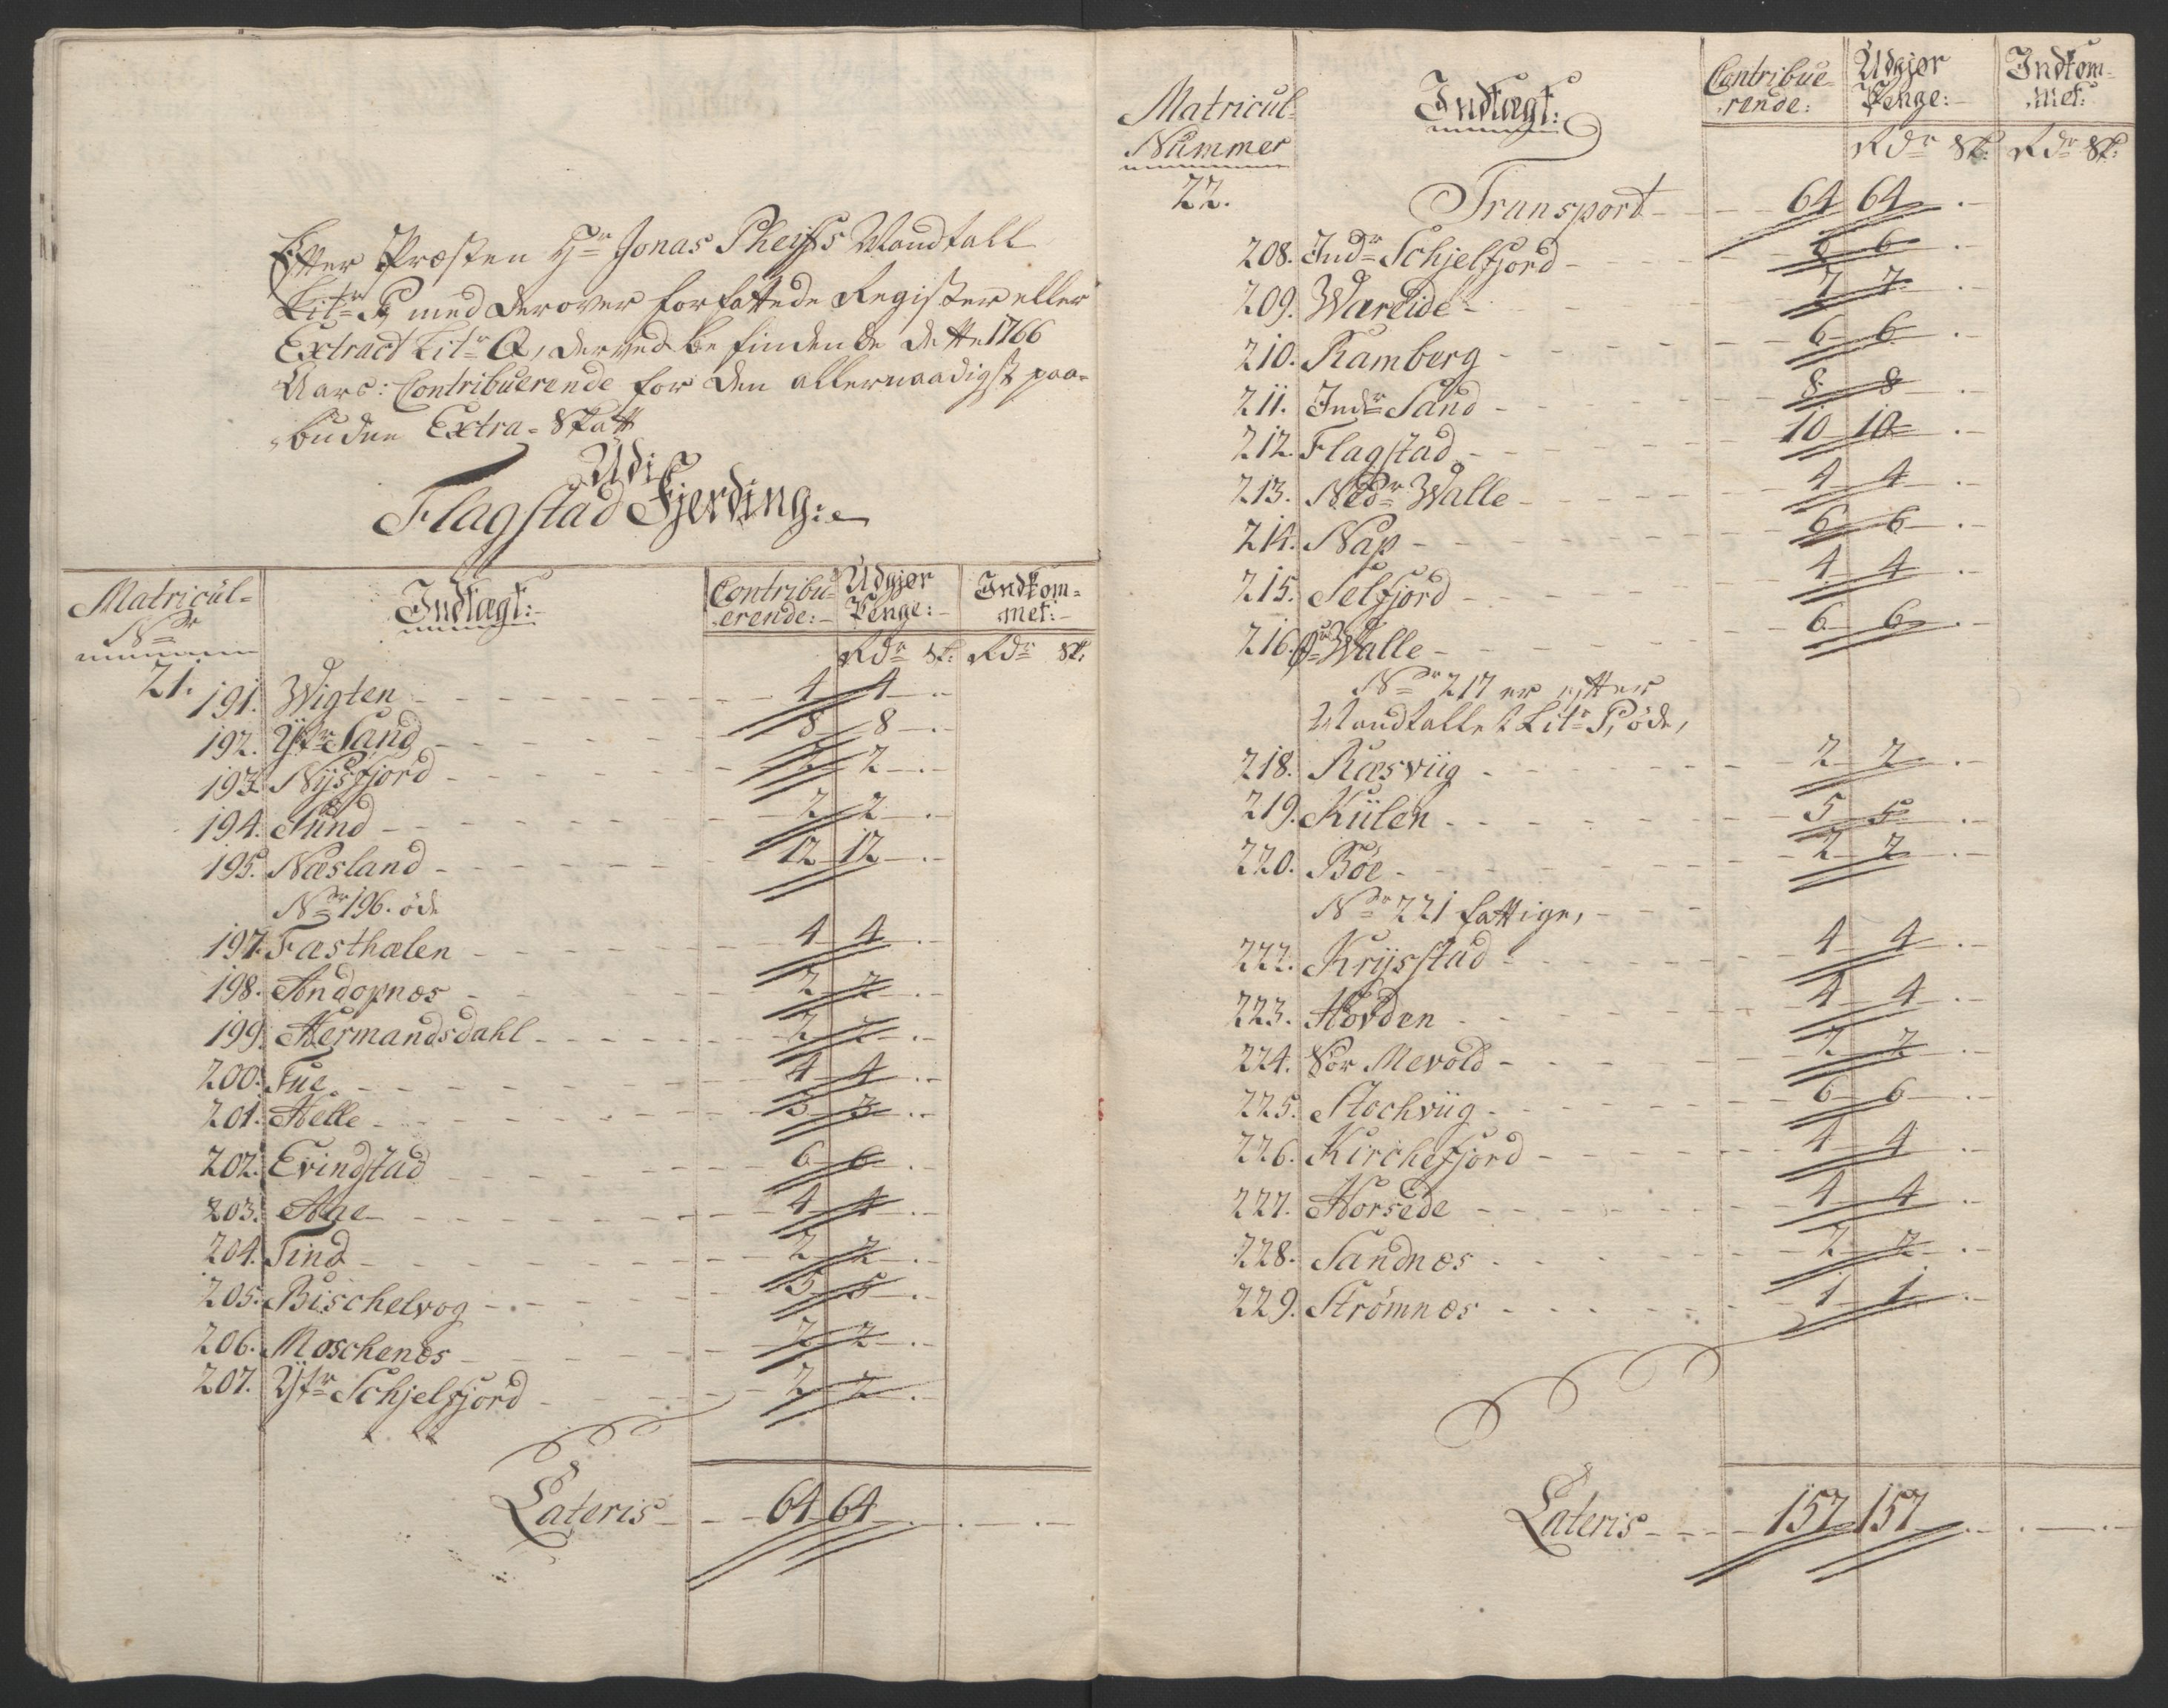 Efter Præsten Hr Jonas Pheiffs Mandtall
Litr P, med derover forfattede Register eller
Extract Litr Q, derved befindende dette 1766
Aars: Contribuerende for den allernaadigst paa-
buden Extra-Skatt
Udi
Flagstad Fjerding:
Matricul- Indtægt: Contribu- Udgjør Indkom-
Nr erende: Penge: met:
Rdr sk: Rdr sk:
21.
191. Wigten 4 4 . -
192. Ytr Sand 8 8 . -
193. Nysfjord 2 2 . -
194. Sund 2 2 . -
195. Næsland 12 12 . -
Nr 196. öde
197. Fæsthælen 4 4 . -
198. Andopnæs 2 2 . -
199. Hermandsdahl 2 2 . -
200. Tue 4 4 . -
201. Helle 3 3 . -
202. Evindstad 6 6 . -
203. Aae 4 4 . -
204. Tind 2 2 . -
205. Bischelvog 5 5 . -
206. Moschenæs 2 2 . -
207. Ytr Schjelfjord 2 2 . -
Lateris 64 64 . - . -
Matricul- Indtægt: Contribue- Udgjør Indkom-
Nummer rende: Penge: met:
Rdr sk: Rdr sk:
22. Transport 64 64 . -
208. Indr Schjelfjord 8 6 . -
209. Wareide 7 7 . -
210. Ramberg 6 6 . -
211. Indr Sand 8 8 . -
212. Flagstad 10 10 . -
213. Nedr Walle 4 4 . -
214. Nap 6 6 . -
215. Selfjord 4 4 . -
216. Øvr Walle 6 6 . -
Nr 217 er efter
Mandtallet Litr P, öde,
218. Ræsviig 2 2 . -
219. Kiilen 5 5 . -
220. Böe 2 2 . -
Nr 221 fattige,
222. Krysstad 4 4 . -
223. Hovden 4 4 . -
224. Sör Mevold 2 2 . -
225. Stochviig 6 6 . -
226. Kirchefjord 4 4 . -
227. Horsede 4 4 . -
228. Sandnæs 2 2 . -
229. Strömnæs 1 1 . -
Lateris 157 157 . - . -